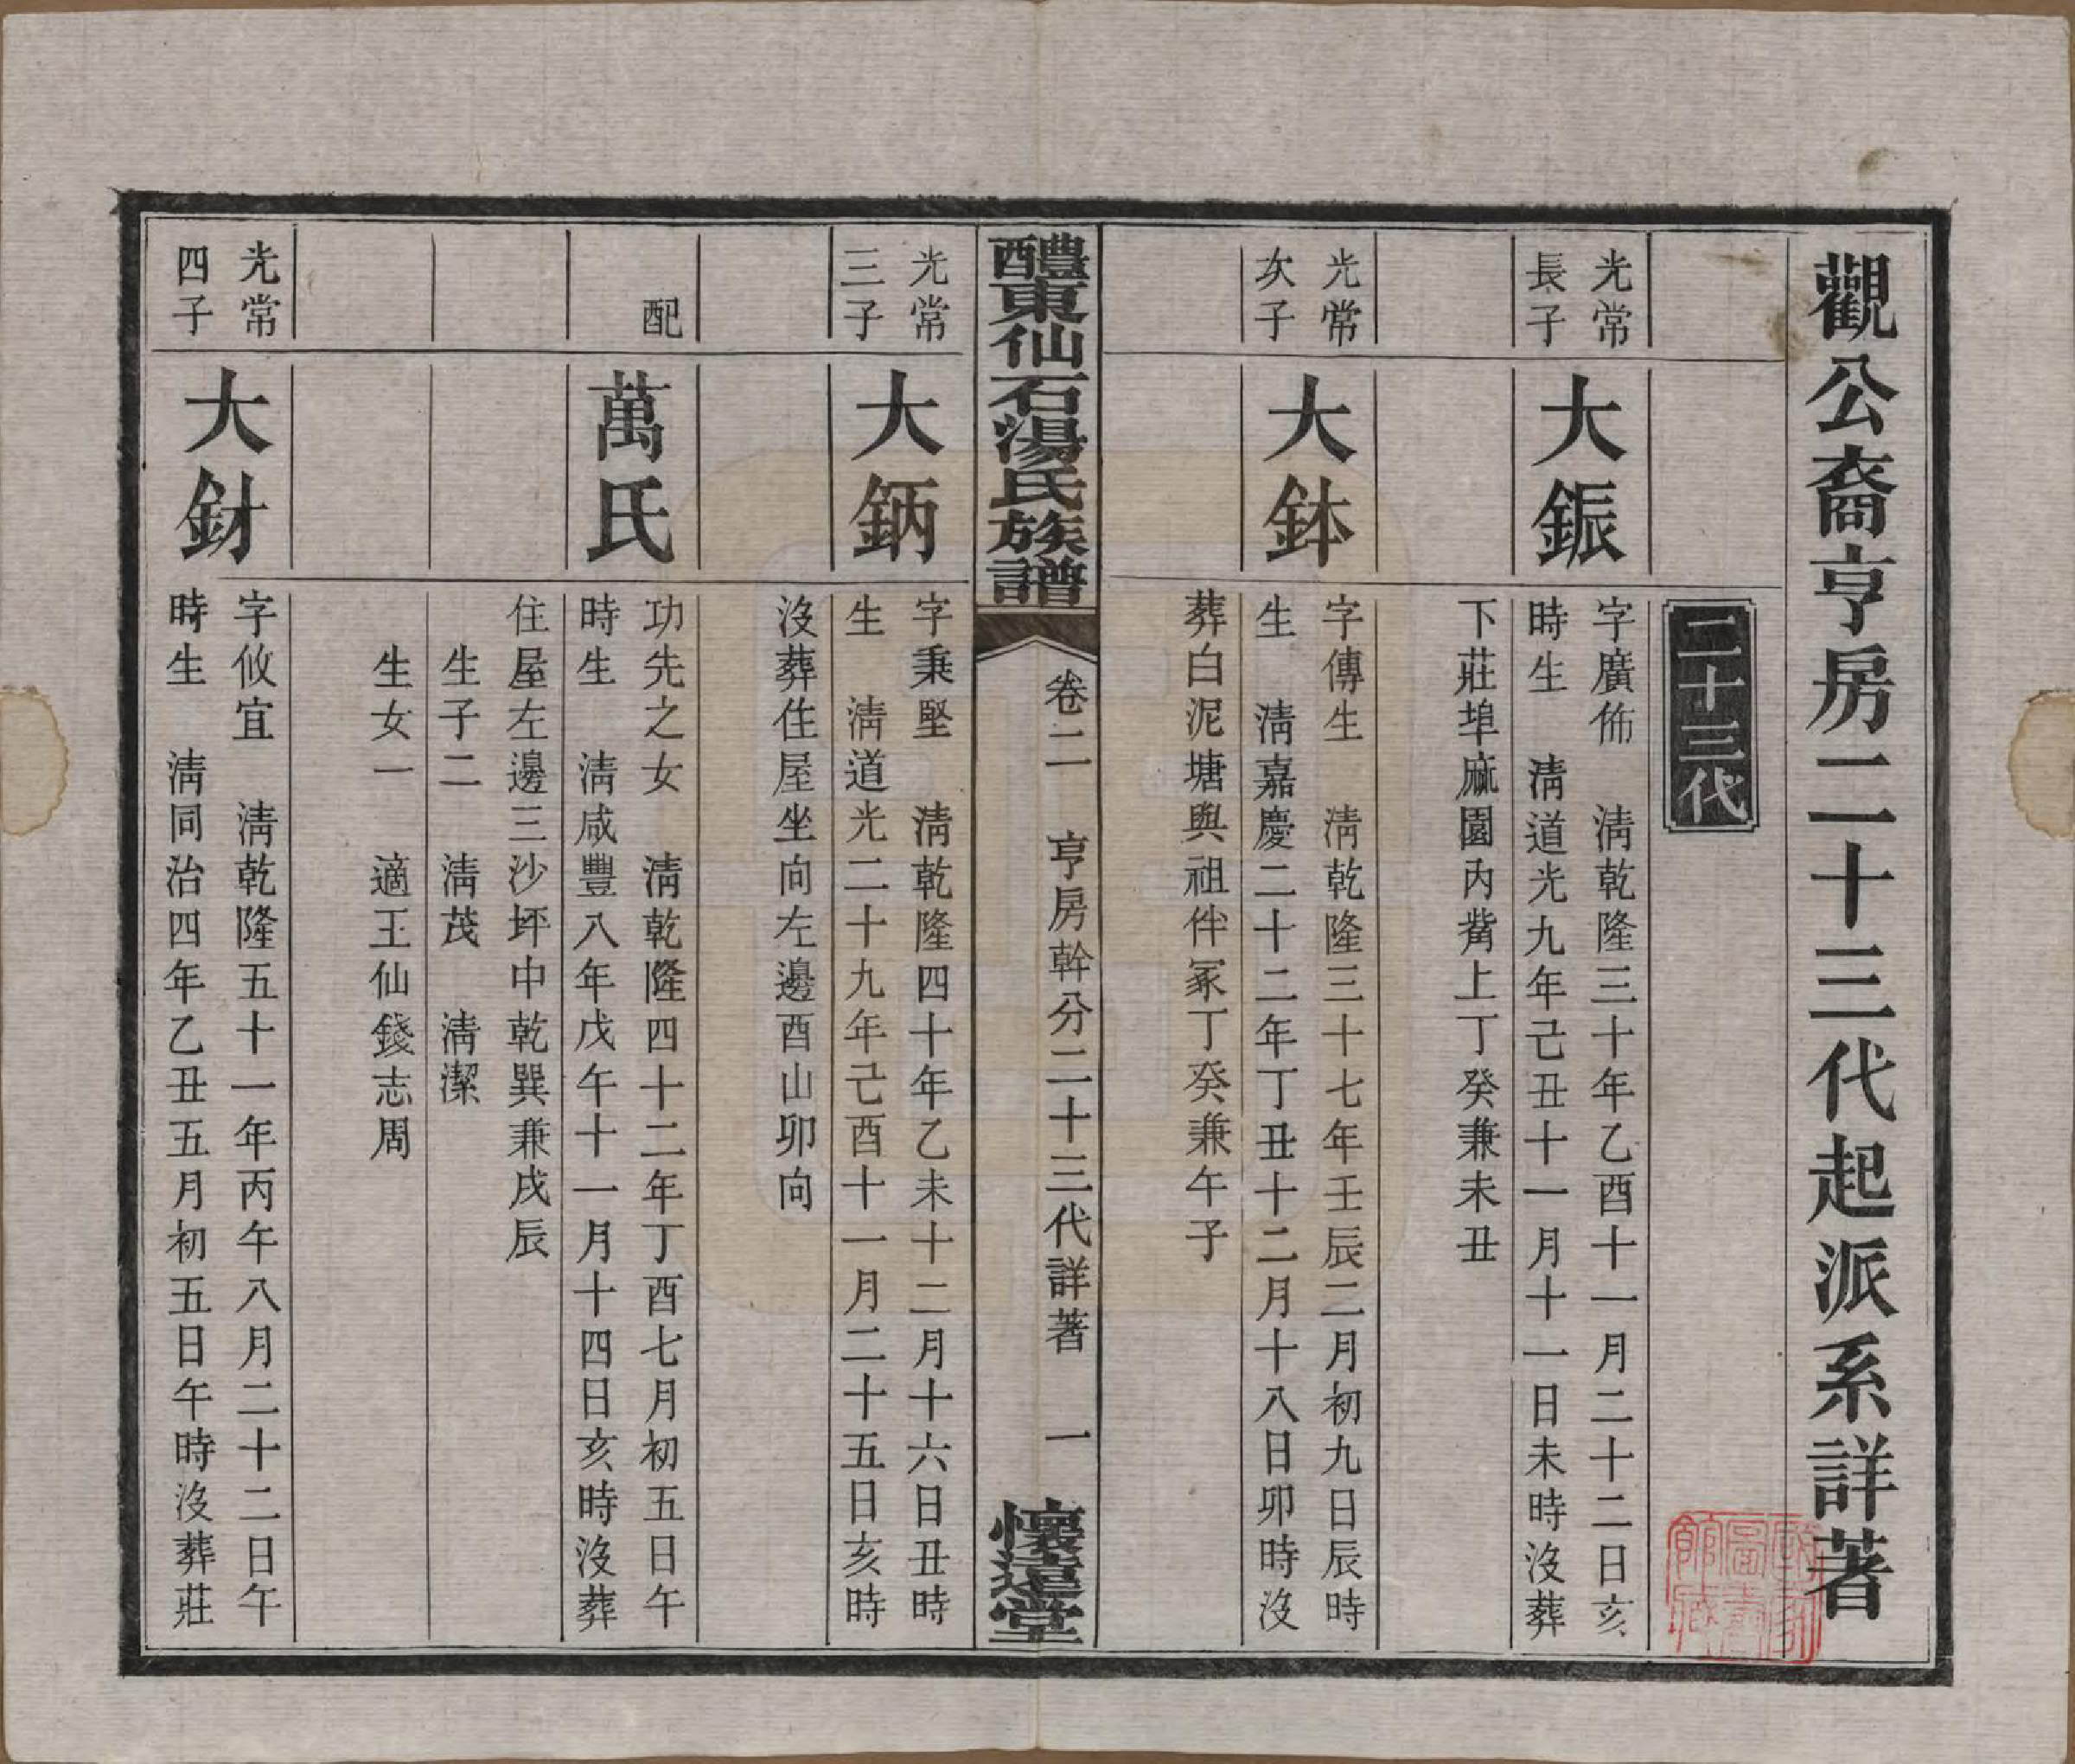 觀公裔亨房二十三代起派系詳著
二十三代
光常
長子
大鋠
字廣佈　淸乾隆三十年乙酉十一月二十二日亥
時生　淸道光九年己丑十一月十一日未時沒葬
下莊埠麻園內觜上丁癸兼未丑
光常
次子
大鉢
字傳生　淸乾隆三十七年壬辰二月初九日辰時
生　淸嘉慶二十二年丁丑十二月十八日卯時沒
葬白泥塘與祖伴冢丁癸兼午子
醴東仙石湯氏族譜
卷二　亨房幹分二十三代詳著　一
懷遠堂
光常
三子
大鈵
字秉堅　淸乾隆四十年乙未十二月十六日丑時
生　淸道光二十九年己酉十一月二十五日亥時
沒葬住屋坐向左邊酉山卯向
配
萬氏
功先之女　淸乾隆四十二年丁酉七月初五日午
時生　淸咸豐八年戊午十一月十四日亥時沒葬
住屋左邊三沙坪中乾巽兼戌辰
生子二　淸茂　淸潔
生女一　適王仙錢志周
光常
四子
大釮
字攸宜　淸乾隆五十一年丙午八月二十二日午
時生　淸同治四年乙丑五月初五日午時沒葬莊